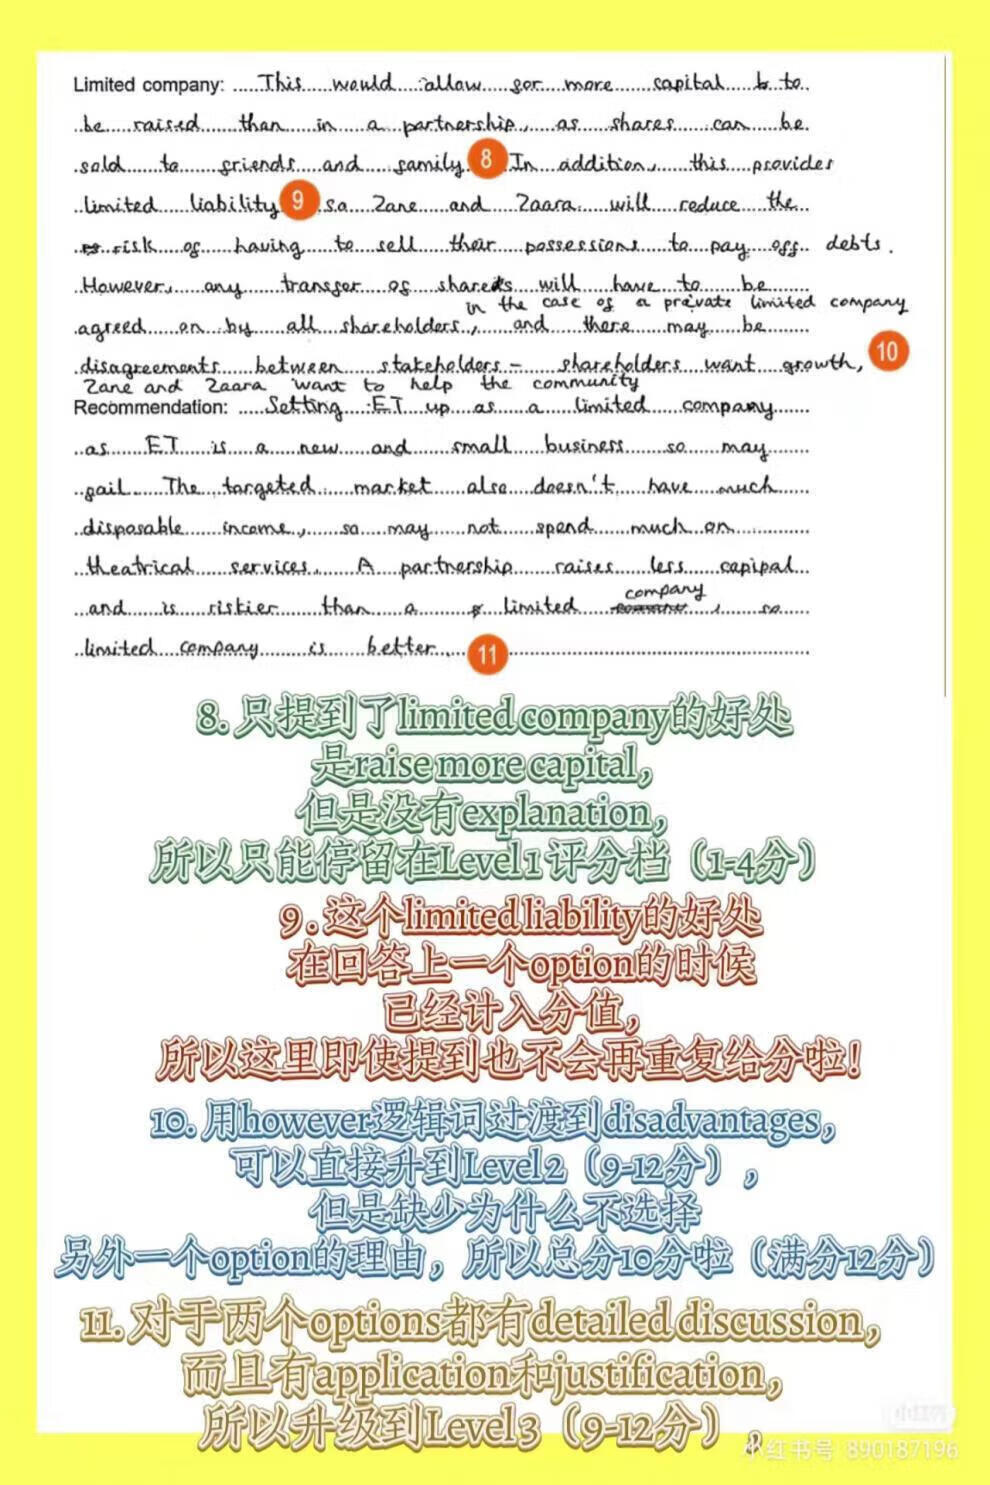 Limited company: This would allow for more capital b to
be raised than in a partnership, as shares can be
sold to friends and family 8 In addition, this provides
limited liability 9 so Zane and Zaara will reduce the
risk of having to sell their possessions to pay off debts.
However, any transfer of shares will have to be
in the case of a private limited company
agreed on by all shareholders, and there may be
disagreements between stakeholders - shareholders want growth, 10
Zane and Zaara want to help the community
Recommendation: Setting ET up as a limited company
as ET is a new and small business so may
fail. The targeted market also doesn't have much
disposable income, so may not spend much on
theatrical services. A partnership raises less capipal
and is riskier than a limited company, so
limited company is better. 11
8. 只提到了limited company的好处
是raise more capital,
但是没有explanation,
所以只能停留在Level 1 评分档（1-4分）
9. 这个limited liability的好处
在回答上一个option的时候
已经计入分值,
所以这里即使提到也不会再重复给分啦!
10. 用however逻辑词过渡到disadvantages,
可以直接升到Level 2（9-12分）,
但是缺少为什么不选择
另外一个option的理由, 所以总分10分啦（满分12分）
11. 对于两个options都有detailed discussion,
而且有application和justification,
所以升级到Level 3（9-12分）,
小红书
小红书号 890187196